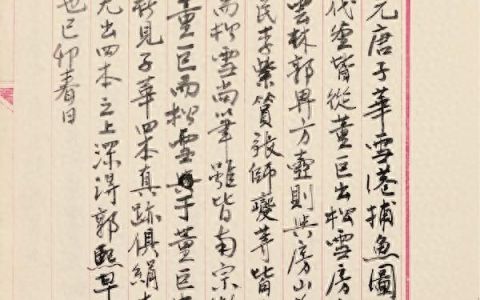 元唐子華雪港捕魚圖
代皆從董巨出松雪房
雲林郭畀方壺則與房山
民李紫篔張師夔等皆
高松雪尚筆雖皆南宗
董巨而松雪于董巨
見子華四本真跡俱絹
尤出四本之上深得郭熙早
也己卯春日